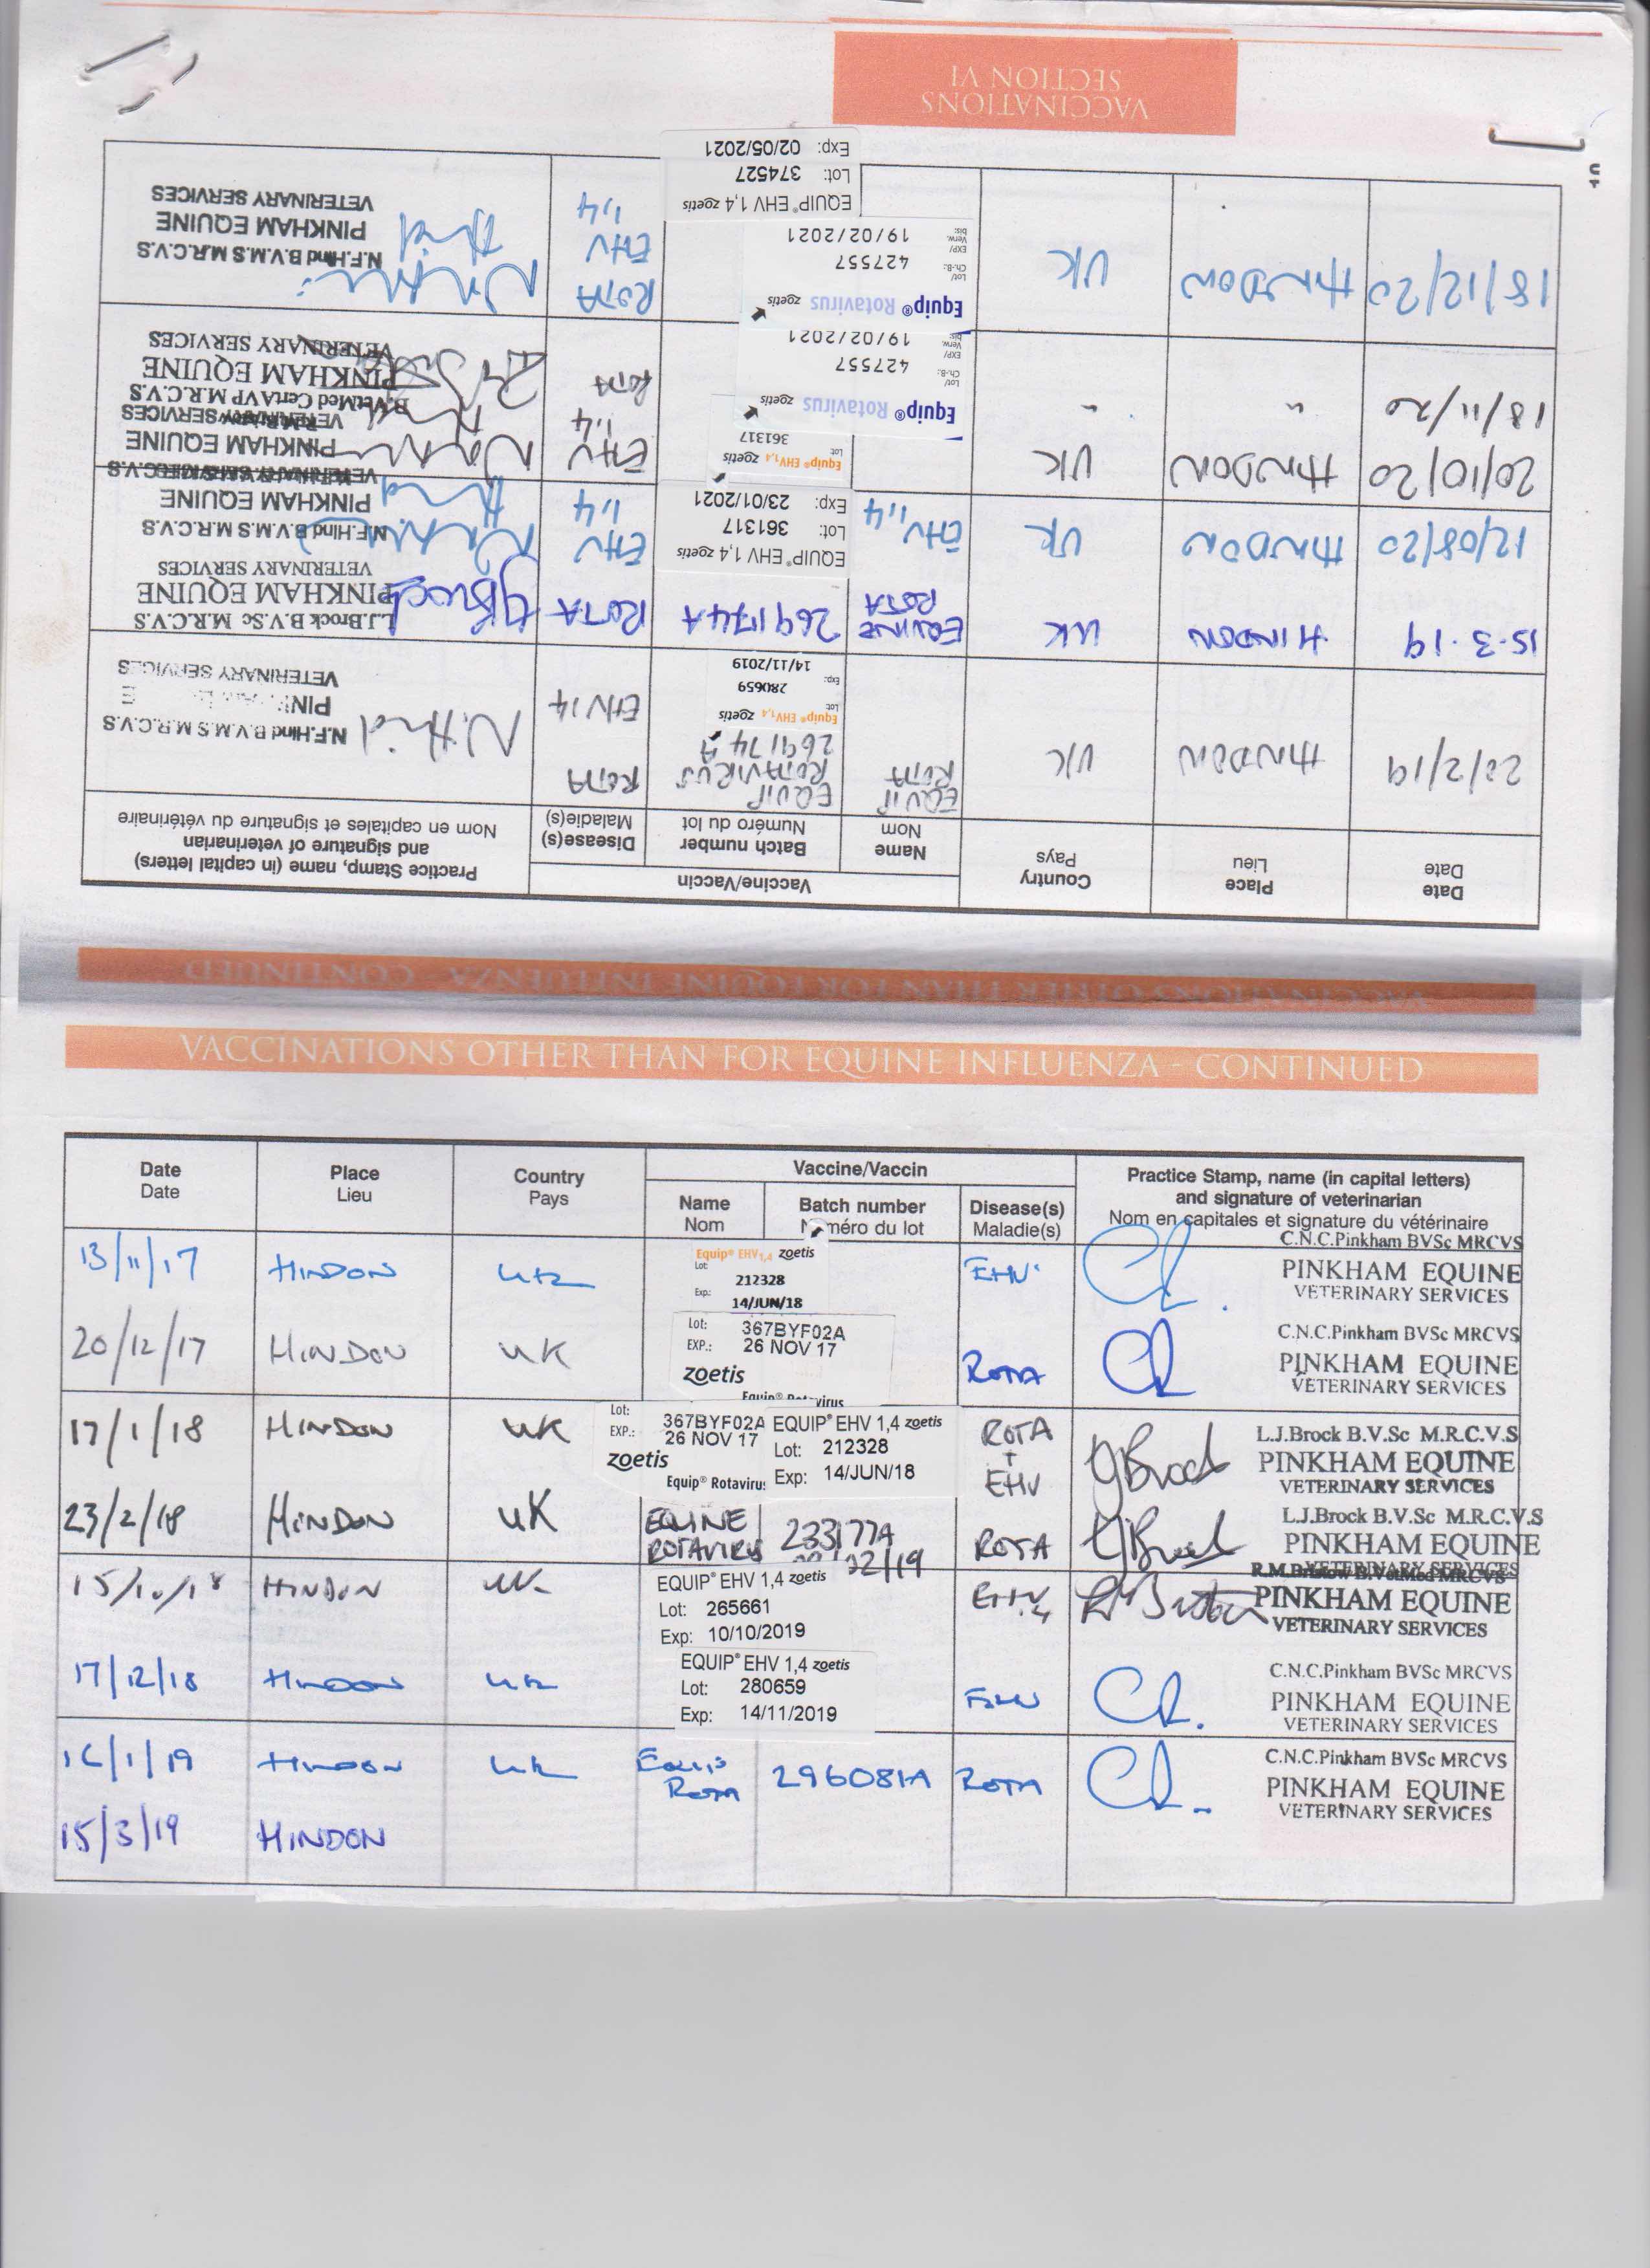 VACCINATIONS
SECTION VI
VACCINATIONS OTHER THAN FOR EQUINE INFLUENZA - CONTINUED
Date Place Country Vaccine/Vaccin Practice Stamp, name (in capital letters)
Date Lieu Pays and signature of veterinarian
Name Batch number Disease(s) Nom en capitales et signature du vétérinaire
Nom Numéro du lot Maladie(s)
HINDON UK EQUIP ROTA EQUIP ROTAVIRUS 269174A ROTA N.Hind
Equip® EHV1,4 zoetis EHV 14 N.F.Hind B.V.M.S M.R.C.V.S
Lot: 280659
Exp: 14/11/2019
VETERINARY SERVICES
15.3.19 HINDON UK EQUINE ROTA 269174A ROTA L.J.Brock B.V.Sc M.R.C.V.S
PINKHAM EQUINE
VETERINARY SERVICES
12/08/20 HINDON UK EHV 1,4 EQUIP® EHV 1,4 zoetis EHV 1,4 N.F.Hind B.V.M.S M.R.C.V.S
Lot: 361317 PINKHAM EQUINE
Exp: 23/01/2021
20/10/20 HINDON UK Equip® EHV1,4 zoetis EHV 1,4 PINKHAM EQUINE
Lot 361317 VETERINARY SERVICES
18/11/20 " " Equip® Rotavirus zoetis ROTA B.VetMed CertAVP M.R.C.V.S
Lot/ Ch.-B.: 427557 PINKHAM EQUINE
EXP/ Verw. bis: 19/02/2021 VETERINARY SERVICES
18/12/20 HINDON UK Equip® Rotavirus zoetis ROTA EHV 1,4 N.F.Hind B.V.M.S M.R.C.V.S
Lot/ Ch.-B.: 427557 PINKHAM EQUINE
EXP/ Verw. bis: 19/02/2021 VETERINARY SERVICES
EQUIP® EHV 1,4 zoetis
Lot: 374527
Exp: 02/05/2021
VACCINATIONS OTHER THAN FOR EQUINE INFLUENZA - CONTINUED
Date Place Country Vaccine/Vaccin Practice Stamp, name (in capital letters)
Date Lieu Pays and signature of veterinarian
Name Batch number Disease(s) Nom en capitales et signature du vétérinaire
Nom Numéro du lot Maladie(s)
13/11/17 HINDON UK Equip® EHV1,4 zoetis EHV C.N.C.Pinkham BVSc MRCVS
Lot: 212328 PINKHAM EQUINE
Exp.: 14/JUN/18 VETERINARY SERVICES
20/12/17 HINDON UK Lot: 367BYF02A ROTA C.N.C.Pinkham BVSc MRCVS
EXP.: 26 NOV 17 PINKHAM EQUINE
zoetis VETERINARY SERVICES
Equip® Rotavirus
17/1/18 HINDON UK Lot: 367BYF02A EQUIP® EHV 1,4 zoetis ROTA + EHV L.J.Brock B.V.Sc M.R.C.V.S
EXP.: 26 NOV 17 Lot: 212328 PINKHAM EQUINE
zoetis Exp: 14/JUN/18 VETERINARY SERVICES
Equip® Rotavirus
23/2/18 HINDON UK EQUINE ROTAVIRUS 233177A ROTA L.J.Brock B.V.Sc M.R.C.V.S
02/19 PINKHAM EQUINE
VETERINARY SERVICES
15/10/18 HINDON UK EQUIP® EHV 1,4 zoetis EHV 1,4
Lot: 265661 PINKHAM EQUINE
Exp: 10/10/2019 VETERINARY SERVICES
17/12/18 HINDON UK EQUIP® EHV 1,4 zoetis EHV C.N.C.Pinkham BVSc MRCVS
Lot: 280659 PINKHAM EQUINE
Exp: 14/11/2019 VETERINARY SERVICES
16/1/19 HINDON UK Equip Rota 296081A ROTA C.N.C.Pinkham BVSc MRCVS
PINKHAM EQUINE
VETERINARY SERVICES
15/3/19 HINDON